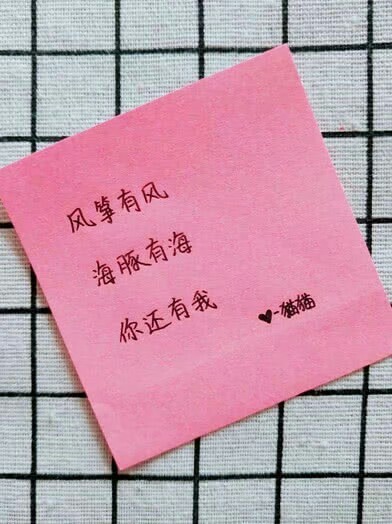 风筝有风
海豚有海
你还有我
♥-猫猫